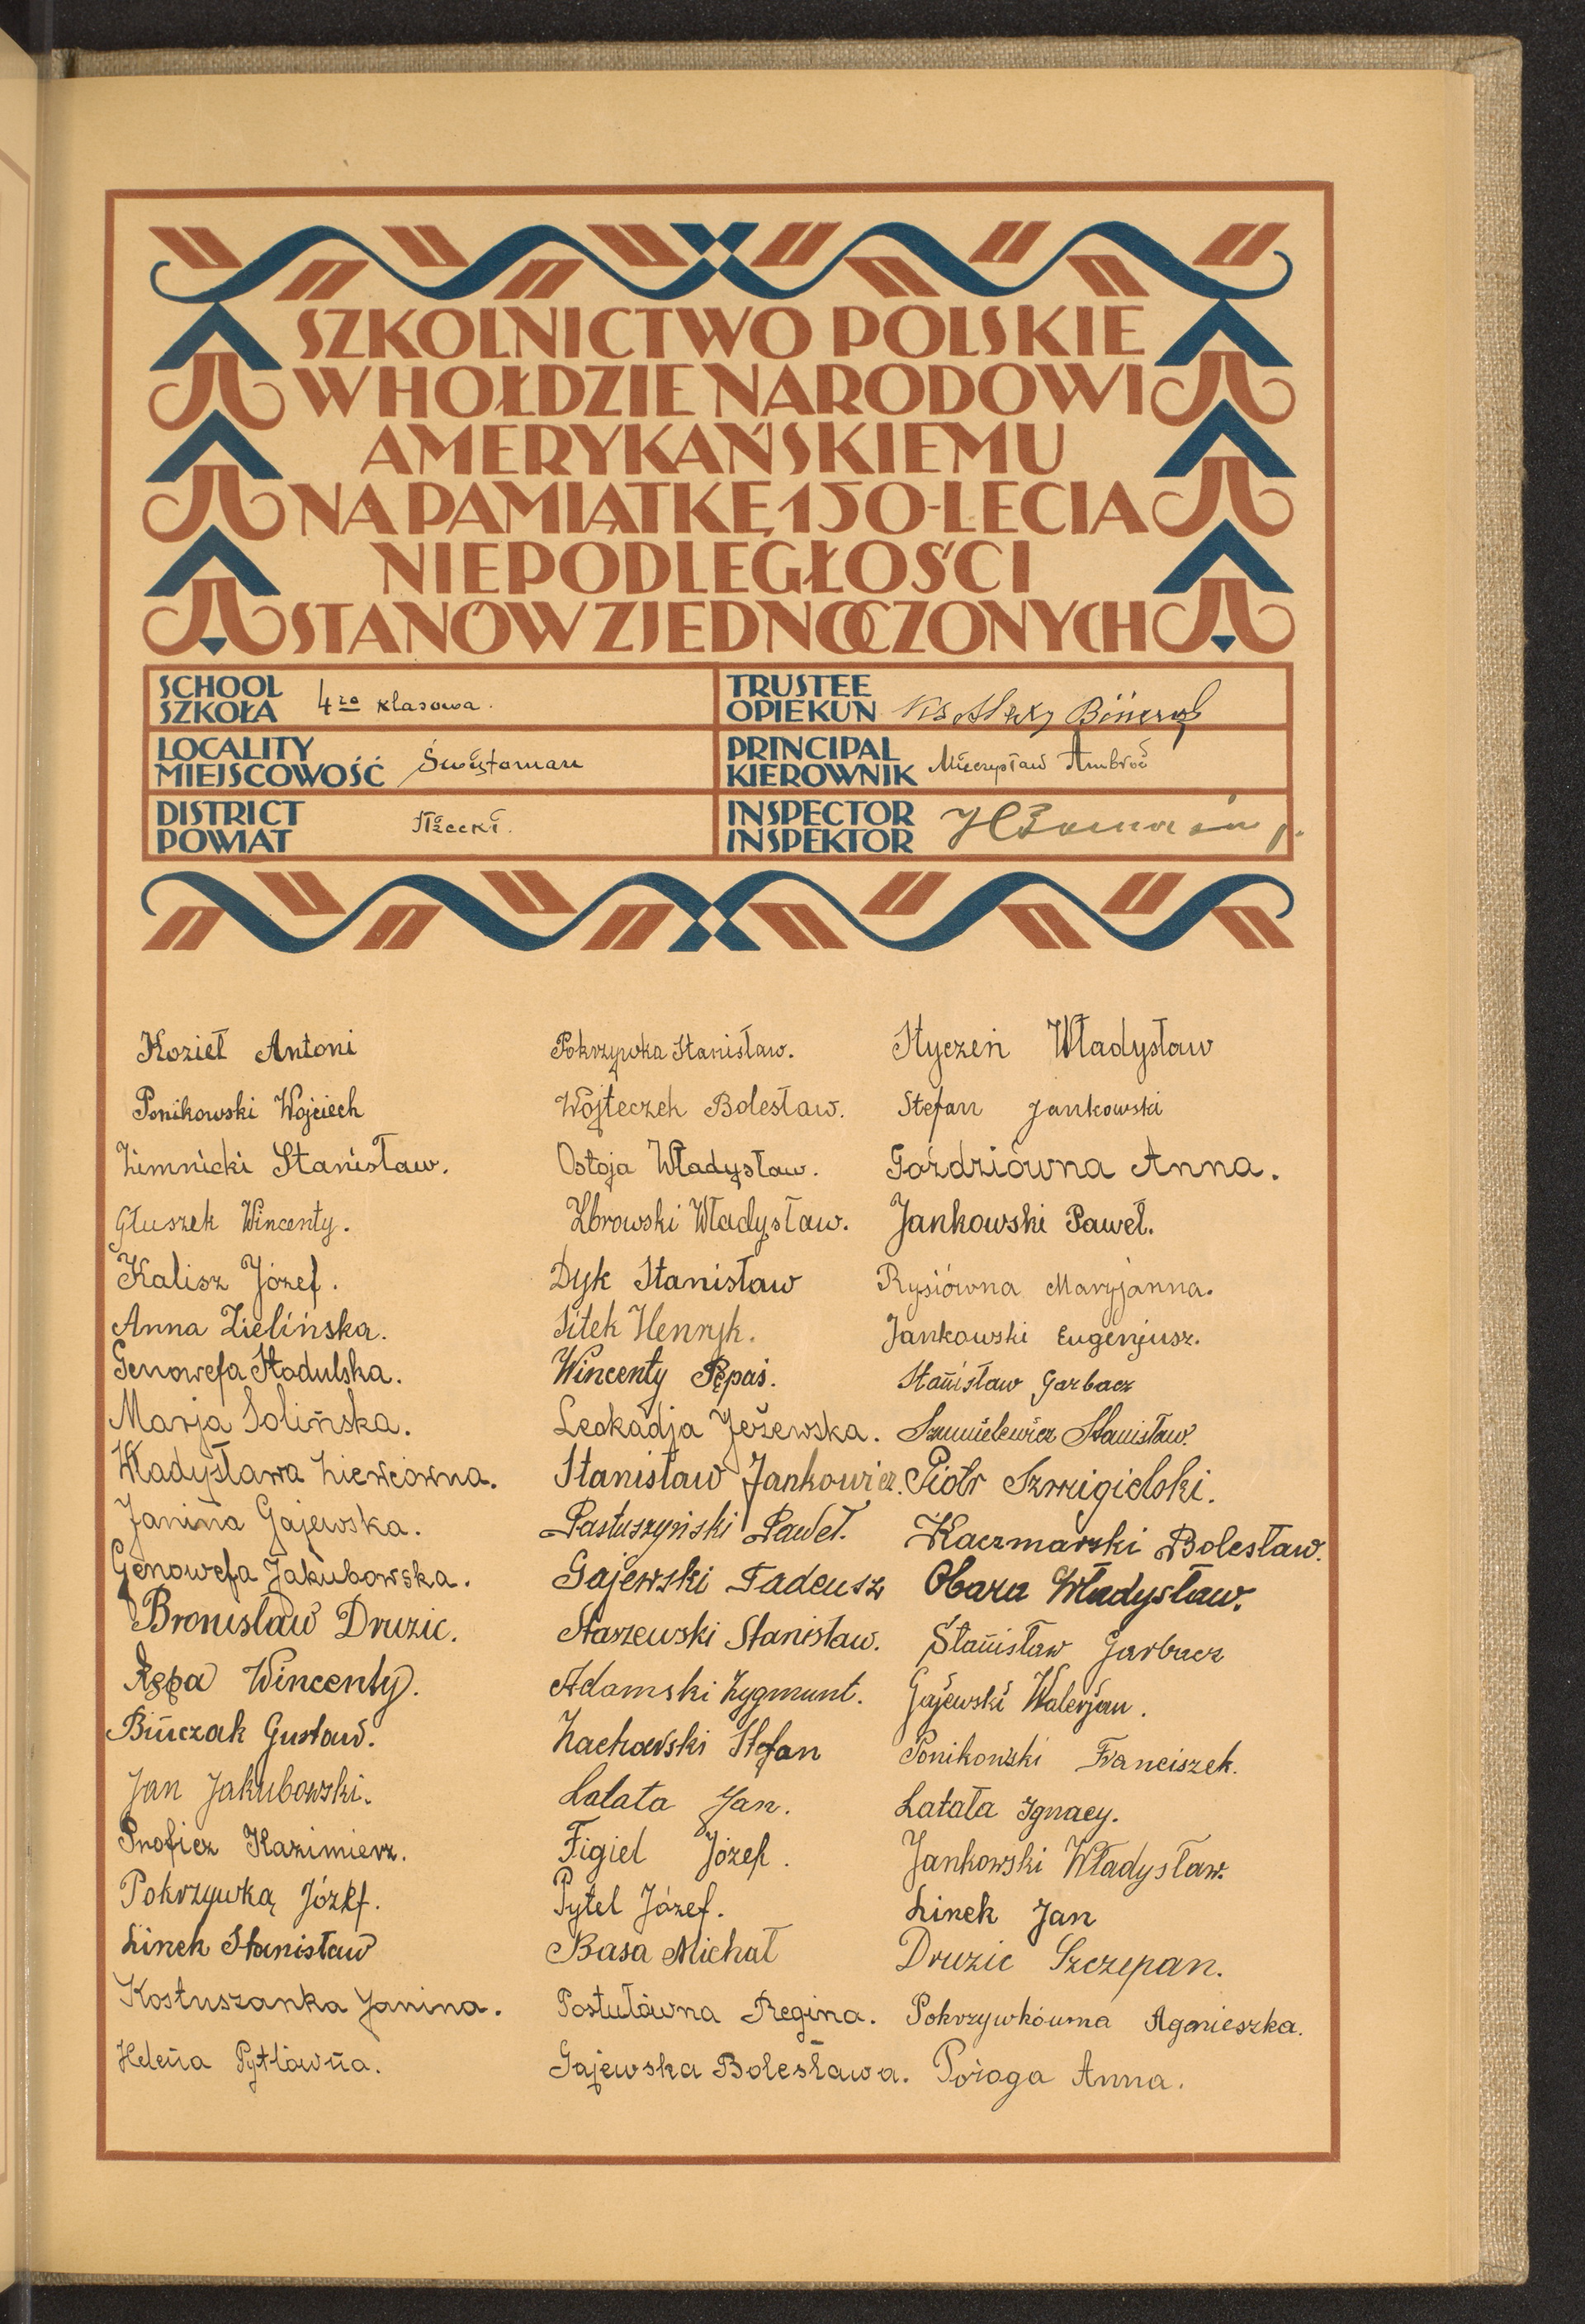 SZKOLNICTWO POLSKIE
W HOŁDZIE NARODOWI
AMERYKAŃSKIEMU
NA PAMIĄTKĘ 150-LECIA
NIEPODLEGŁOŚCI
STANÓW ZJEDNOCZONYCH
SCHOOL
SZKOŁA 4ro klasowa.
TRUSTEE
OPIEKUN
LOCALITY
MIEJSCOWOŚĆ Świętomarz
PRINCIPAL
KIEROWNIK Mieczysław Ambroć
DISTRICT
POWIAT Iłżecki.
INSPECTOR
INSPEKTOR
Kozieł Antoni
Ponikowski Wojciech
Ziemnicki Stanisław.
Głuszek Wincenty.
Kalisz Józef.
Anna Zielińska.
Genowefa Stodulska.
Marja Solińska.
Władysława
Janina Gajewska.
Genowefa Jakubowska.
Bronisław Druzic.
Rępa Wincenty.
Bińczak Gustaw.
Jan Jakubowski.
Proficz Kazimierz.
Pokrzywką Józef.
Linek Stanisław
Kostuszanka Janina.
Helena Pytlówna.
Pokrzywka Stanisław.
Wójteczek Bolesław.
Ostoja Władysław.
Zbrowski Władysław.
Dyk Stanisław
Sitek Henryk.
Wincenty Pępaś.
Leokadja Jeżewska.
Stanisław Jankowicz.
Pastuszyński Paweł.
Gajewski Tadeusz
Starzewski Stanisław.
Adamski Zygmunt.
Zachowski Stefan
Latata Jan.
Figiel Józef.
Pytel Józef.
Basa Michał
Postułówna Regina.
Gajewska Bolesława.
Styczeń Władysław
Stefan Jankowski
Goździówna Anna.
Jankowski Paweł.
Rysiówna Maryjanna.
Jankowski Eugenjusz.
Stanisław Garbacz
Szmielewicz Stanisław.
Piotr Szmigielski.
Kaczmarski Bolesław.
Obara Władysław.
Stanisław Garbacz
Gajewski Walerjan.
Ponikowski Franciszek.
Latała Ignacy.
Jankowski Władysław.
Linek Jan
Druzic Szczepan.
Pokrzywkówna Agnieszka.
Pożoga Anna.